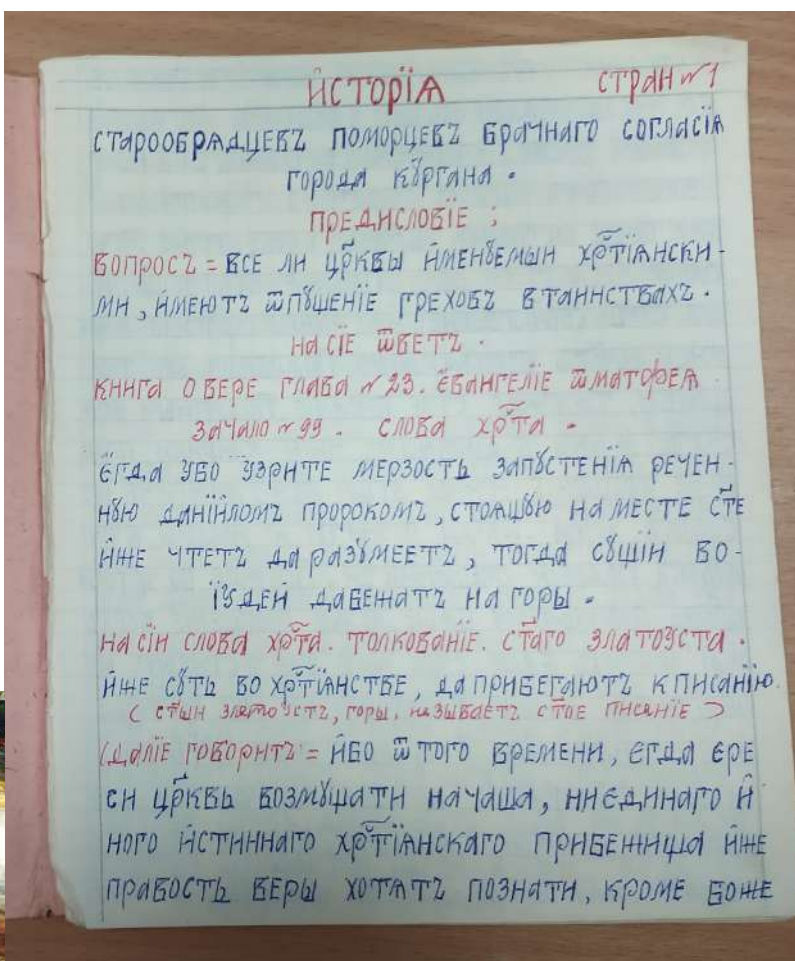 И҆СТОРЇѦ СТРАН № 1
СТАРООБРѦДЦЕВЪ ПОМОРЦЕВЪ БРАЧНАГО СОГЛАСЇѦ
ГОРОДА КꙊРГАНА.
ПРЕДИСЛОВЇЕ;
ВОПРОСЪ = ВСЕ ЛИ ЦР҃КВЫ И҆МЕНꙊЕМЫИ ХРⷭ҇ТЇѦНСКИ-
МИ, И҆МЕЮТЪ Ѿ ПꙊЩЕНЇЕ ГРЕХОВЪ В ТАИНСТВАХЪ.
НА СЇЕ ѾВЕТЪ.
КНИГА О ВЕРЕ ГЛАВА № 23. Е҆ВАНГЕЛЇЕ Ѿ МАТОФЕѦ.
ЗАЧАЛО № 99. СЛОВА ХРⷭ҇ТА.
Е҆ГДА УБО УЗРИТЕ МЕРЗОСТЬ ЗАПꙊСТЕНЇѦ РЕЧЕН-
НꙊЮ ДАНЇИ҆ЛОМЪ ПРОРОКОМЪ, СТОѦЩꙊЮ НА МЕСТЕ СТ҃Е
И҆ЖЕ ЧТЕТЪ ДА РАЗꙊМЕЕТЪ, ТОГДА СꙊЩІИ ВО-
ЇУДЕИ ДА БЕЖАТЪ НА ГОРЫ.
НА СІИ СЛОВА ХРⷭ҇ТА. ТОЛКОВАНЇЕ. СТ҃АГО ЗЛАТОУСТА.
И҆ЖЕ СꙊТЬ ВО ХРⷭ҇ТЇѦНСТВЕ, ДА ПРИБЕГАЮТЪ К ПИСАНЇЮ.
( СТ҃ЫИ ЗЛАТОУСТЪ, ГОРЫ, НАЗЫВАЕТЪ СТ҃ОЕ ПИСАНЇЕ )
(ДАЛЇЕ ГОВОРИТЪ = И҆БО Ѿ ТОГО ВРЕМЕНИ, ЕГДА ЕРЕ
СИ ЦР҃КВЬ ВОЗМꙊЩАТИ НАЧАША, НИ ЕДИНАГО И҆
НОГО И҆СТИННАГО ХРⷭ҇ТЇѦНСКАГО ПРИБЕЖИЩА И҆ЖЕ
ПРАВОСТЬ ВЕРЫ ХОТѦТЪ ПОЗНАТИ, КРОМЕ БОЖЕ